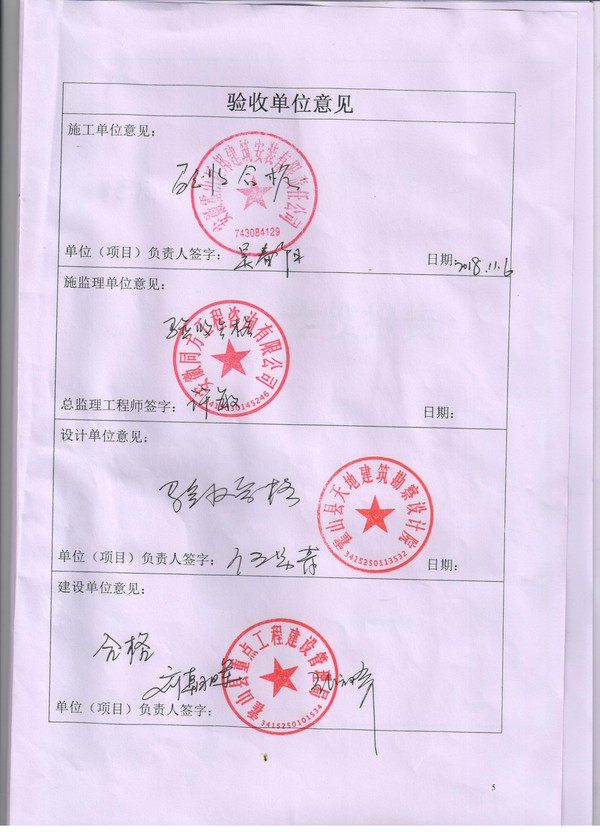 验收单位意见
施工单位意见:
验收合格
743084129
单位（项目）负责人签字: 吴春阳
日期: 2018.11.6
施监理单位意见:
验收合格
安徽同方工程咨询有限公司
总监理工程师签字: 许敏
日期:
设计单位意见:
验收合格
霍山县天地建筑勘察设计院
3415250113532
单位（项目）负责人签字:
日期:
建设单位意见:
合格
霍山县重点工程建设管理局
3415250101534
单位（项目）负责人签字:
5